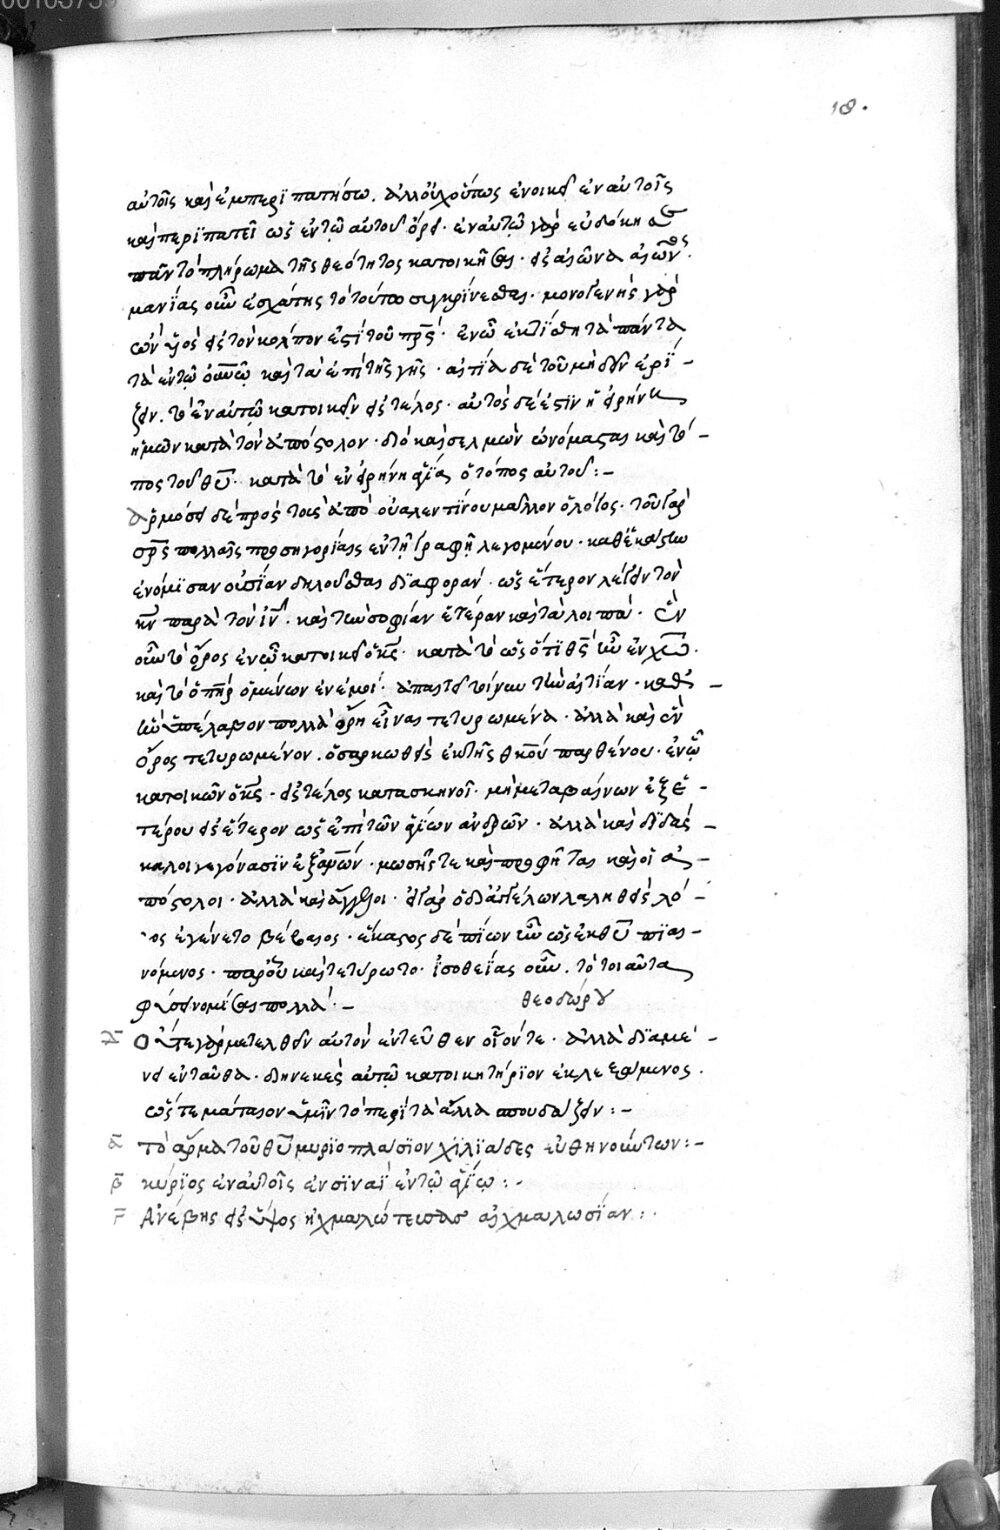 18.
αὐτοῖς καὶ ἐμπεριπατήσω. ἀλλ' οὐχ οὕτως ἐνοικεῖ ἐν αὐτοῖς
καὶ περιπατεῖ ὡς ἐν τῷ αὐτοῦ ὄρει. ἐν αὐτῷ γὰρ εὐδόκησε
πᾶν τὸ πλήρωμα τῆς θεότητος κατοικῆσαι. εἰς αἰῶνα αἰῶνος.
μανίας οὖν ἐσχάτης τὸ τούτῳ συγκρίνεσθαι. μονογενὴς γὰρ
ὢν υἱὸς εἰς τὸν κόλπον ἐστὶ τοῦ πρς. ἐν ᾧ ἐκτίσθη τὰ πάντα
τὰ ἐν τῷ οὐνῷ καὶ τὰ ἐπὶ τῆς γῆς. αἰτία δὲ τοῦ μηδὲν ἐρί-
ζειν. τὸ ἐν αὐτῷ κατοικεῖν εἰς τέλος. αὐτὸς δέ ἐστιν ἡ εἰρήνη
ἡμῶν κατὰ τὸν ἀπόστολον. διὸ καὶ σελμὼν ὠνόμασται καὶ τό-
πος τοῦ θυ. κατὰ τὸ ἐν εἰρήνῃ ἁγίᾳ ὁ τόπος αὐτοῦ:-
ἁρμόσει δὲ πρὸς τοὺς ἀπὸ οὐαλεντίνου μᾶλλον ὁ λόγος. τοῦ γὰρ
σρς πολλαῖς προσηγορίαις ἐν τῇ γραφῇ λεγομένου. καθ' ἑκάστω
ἐνόμισαν οὐσίαν δηλοῦσθαι διάφορον. ὡς ἕτερον λέγειν τὸν
χν παρὰ τὸν ιν. καὶ τὴν σοφίαν ἑτέραν καὶ τὰ λοιπά. ἓν
οὖν τὸ ὄρος ἐν ᾧ κατοικεῖ ὁ κς. κατὰ τὸ ὡς ὅτι θς ἦν ἐν χω.
καὶ τὸ ὁ πηρ ὁ μένων ἐν ἐμοί. ἀπαιτεῖ τοίνυν τὴν αἰτίαν. καθ'
ἣν ὑπέλαβον πολλὰ ὄρη εἶναι τετυρωμένα. ἀλλὰ καὶ ἓν
ὄρος τετυρωμένον. ὁ σαρκωθεὶς ἐκ τῆς θκου παρθένου. ἐν ᾧ
κατοικῶν ὁ κς. εἰς τέλος κατασκηνοῖ. μὴ μεταβαίνων ἐξ ἑ-
τέρου εἰς ἕτερον ὡς ἐπὶ τῶν ἁγίων ἀνδρῶν. ἀλλὰ καὶ διδάσ-
καλοι γεγόνασιν ἐξ ἡμῶν. μωσῆς τε καὶ προφῆται καὶ οἱ ἀ-
πόστολοι. ἀλλὰ καὶ ἄγγελοι. εἰ γὰρ ὁ δι' ἀγγέλων λαληθεὶς λό-
γος ἐγένετο βέβαιος. ἕκαστος δὲ πίων ἦν ὡς ἐκ θυ πιαι-
νόμενος. παρ' οὗ καὶ τετύρωτο. ἰσοθεΐας οὖν. τὸ τοιαῦτα
φύσει νομίσαι πολλά.- θεοδώρου
λ Οὔτε γὰρ μετελθεῖν αὐτὸν ἐντεῦθεν οἷόν τε. ἀλλὰ διαμέ-
νει ἐνταῦθα. διηνεκὲς αὐτῷ κατοικητήριον ἐκλεξάμενος.
ὥστε μάταιον ὑμῖν τὸ περὶ τὰ ἄλλα σπουδάζειν:-
α τὸ ἅρμα τοῦ θυ μυριοπλάσιον χιλιάδες εὐθηνούντων:-
β κύριος ἐν αὐτοῖς ἐν σιναῒ ἐν τῷ ἁγίῳ:-
γ Ἀνέβης εἰς ὕψος ᾐχμαλώτευσας αἰχμαλωσίαν:.